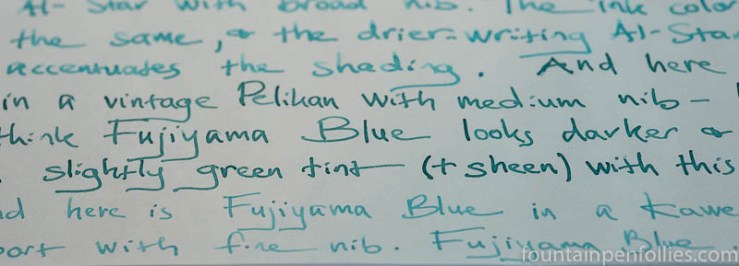 Al-Star with broad nib. The ink color
the same, & the drier-writing Al-Sta
accentuates the shading. And here
in a vintage Pelikan with medium nib –
think Fujiyama Blue looks darker or
slightly green tint (+ sheen) with this
d here is Fujiyama Blue in a Kawe
port with fine nib. Fujiyama Blue
fountainpenfollies.com